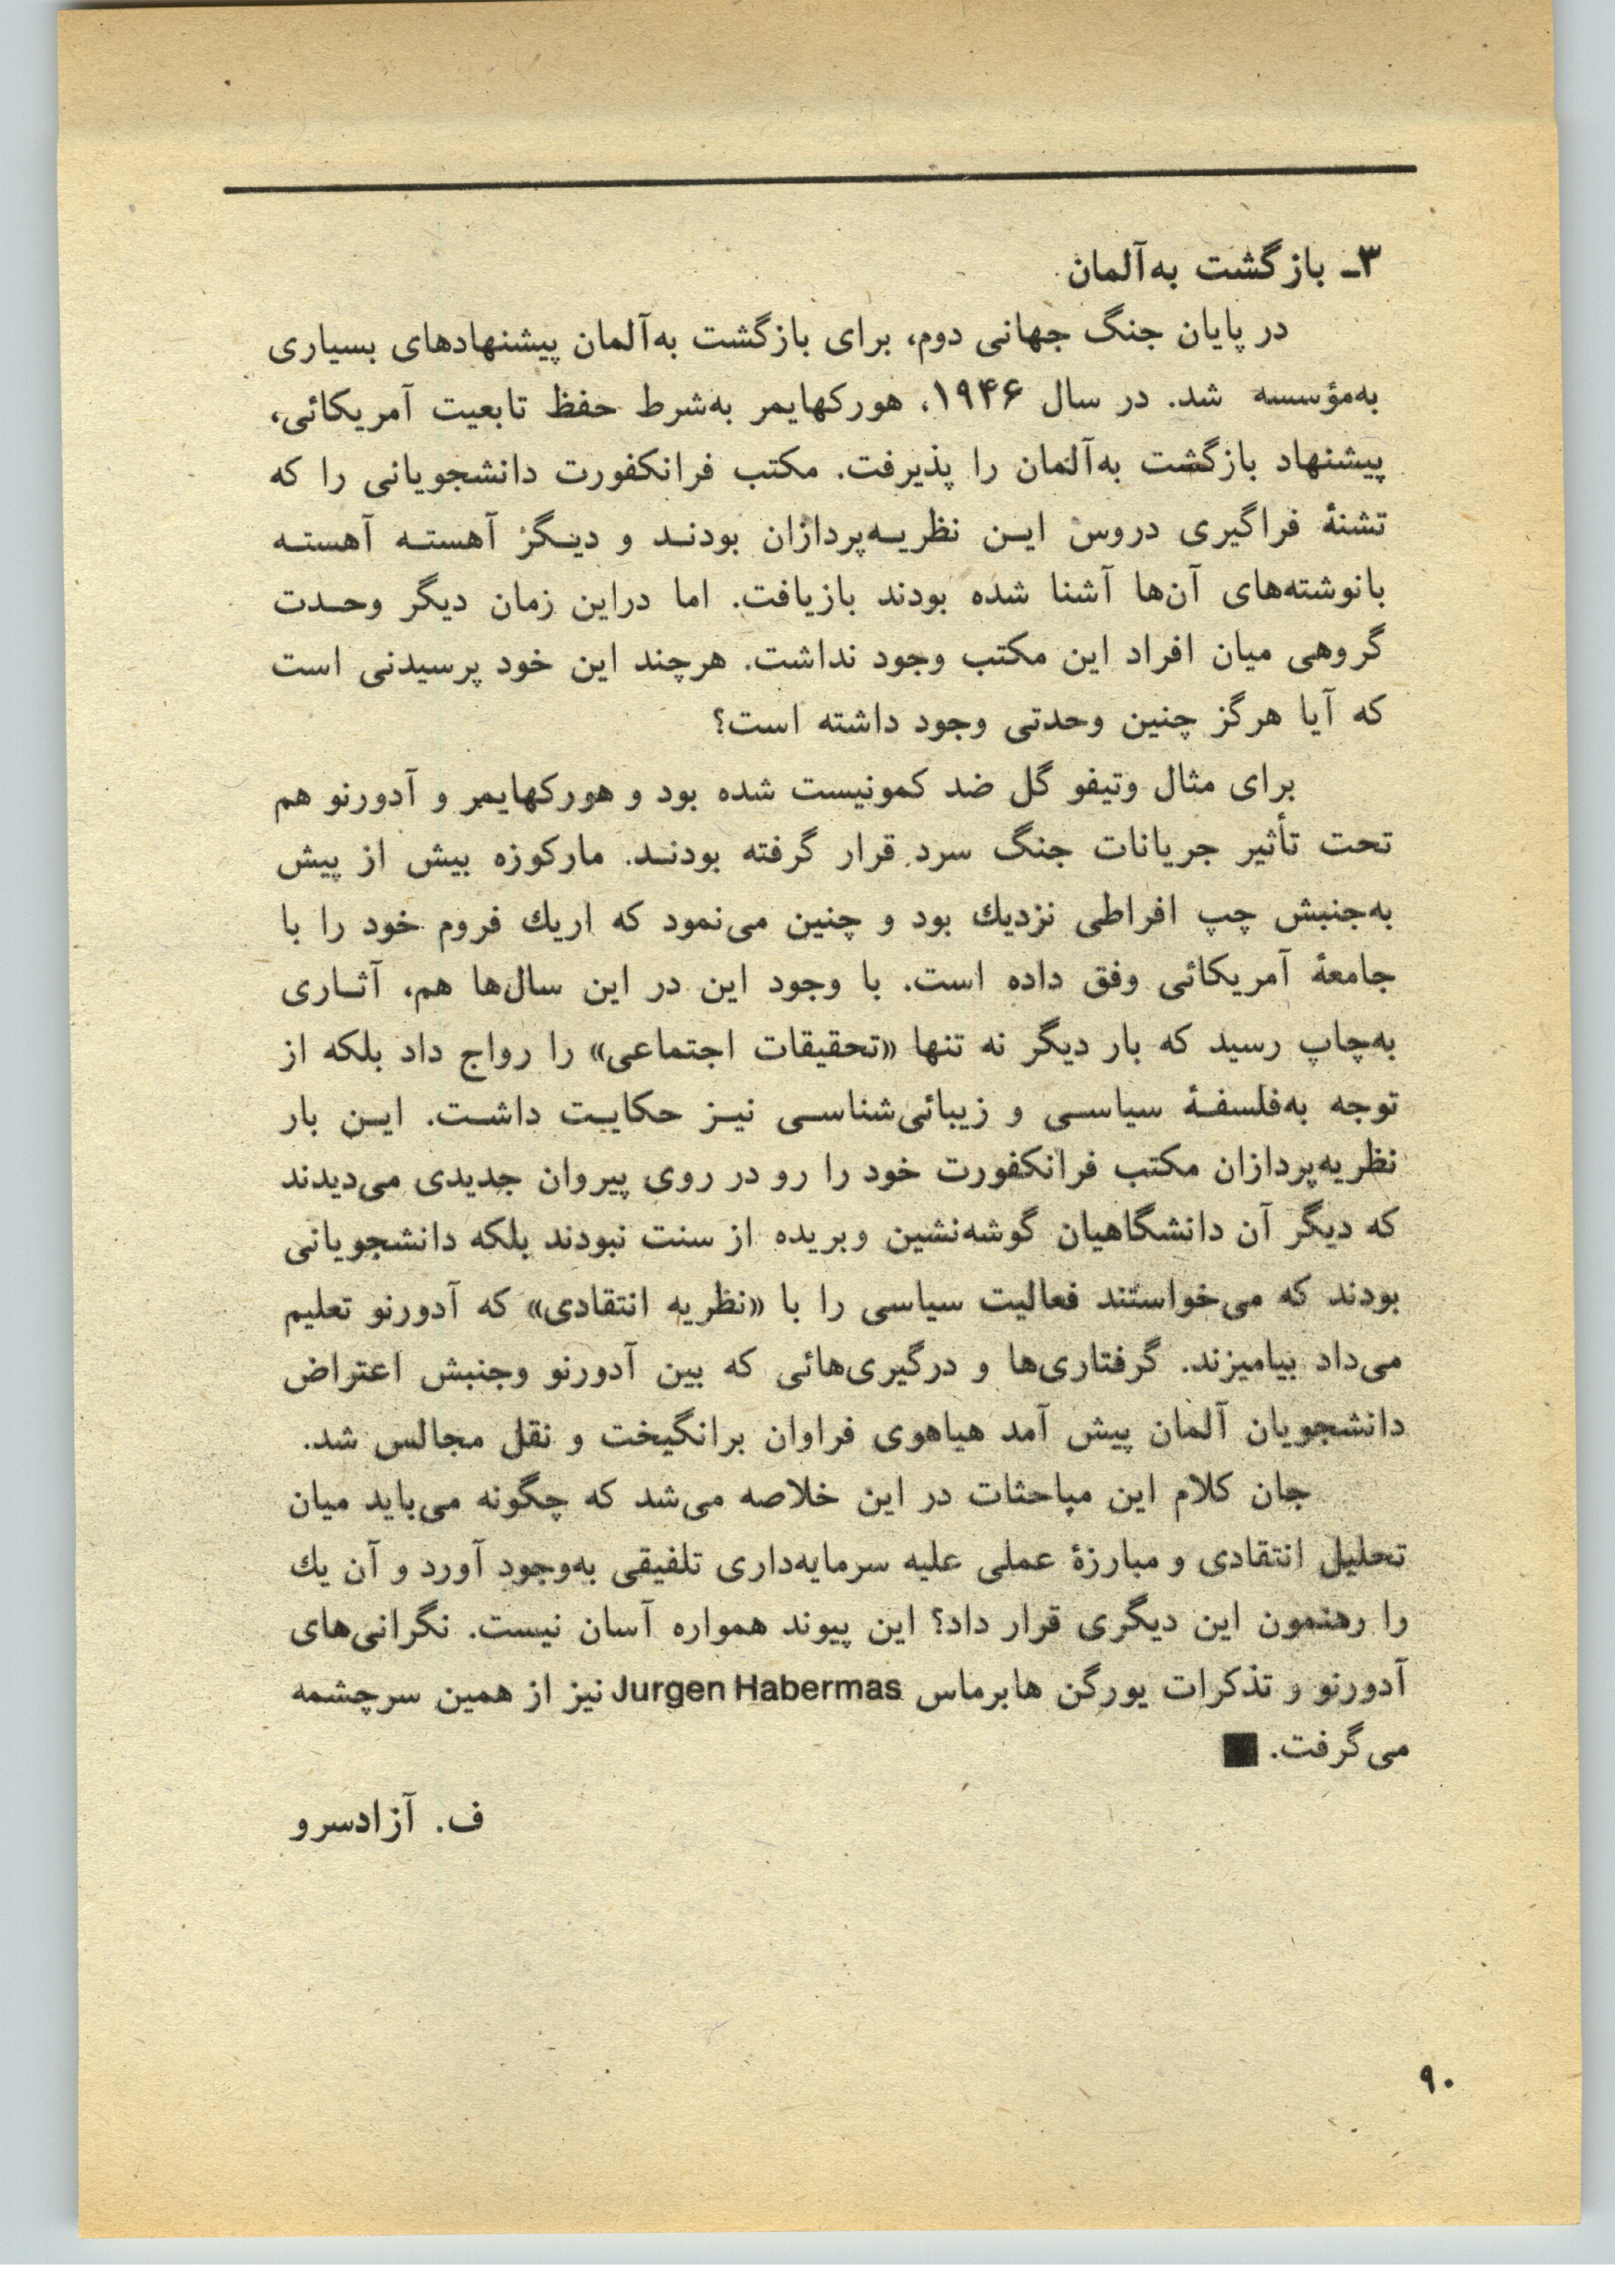 ۳ـ بازگشت به‌آلمان
در پایان جنگ جهانی دوم، برای بازگشت به‌آلمان پیشنهادهای بسیاری
به‌مؤسسه شد. در سال ۱۹۴۶، هورکهایمر به‌شرط حفظ تابعیت آمریکائی،
پیشنهاد بازگشت به‌آلمان را پذیرفت. مکتب فرانکفورت دانشجویانی را که
تشنهٔ فراگیری دروس ایـن نظریـه‌پردازان بودنـد و دیـگر آهستـه آهستـه
بانوشته‌های آن‌ها آشنا شده بودند بازیافت. اما دراین زمان دیگر وحـدت
گروهی میان افراد این مکتب وجود نداشت. هرچند این خود پرسیدنی است
که آیا هرگز چنین وحدتی وجود داشته است؟
برای مثال وتیفو گل ضد کمونیست شده بود و هورکهایمر و آدورنو هم
تحت تأثیر جریانات جنگ سرد قرار گرفته بودنـد. مارکوزه بیش از پیش
به‌جنبش چپ افراطی نزدیك بود و چنین می‌نمود که اریك فروم خود را با
جامعهٔ آمریکائی وفق داده است. با وجود این در این سال‌ها هم، آثـاری
به‌چاپ رسید که بار دیگر نه تنها «تحقیقات اجتماعی» را رواج داد بلکه از
توجه به‌فلسفـهٔ سیاسـی و زیبائی‌شناسـی نیـز حکایـت داشـت. ایـن بار
نظریه‌پردازان مکتب فرانکفورت خود را رو در روی پیروان جدیدی می‌دیدند
که دیگر آن دانشگاهیان گوشه‌نشین وبریده از سنت نبودند بلکه دانشجویانی
بودند که می‌خواستند فعالیت سیاسی را با «نظریه انتقادی» که آدورنو تعلیم
می‌داد بیامیزند. گرفتاری‌ها و درگیری‌هائی که بین آدورنو وجنبش اعتراض
دانشجویان آلمان پیش آمد هیاهوی فراوان برانگیخت و نقل مجالس شد.
جان کلام این مباحثات در این خلاصه می‌شد که چگونه می‌باید میان
تحلیل انتقادی و مبارزهٔ عملی علیه سرمایه‌داری تلفیقی به‌وجود آورد و آن یك
را رهنمون این دیگری قرار داد؟ این پیوند همواره آسان نیست. نگرانی‌های
آدورنو و تذکرات یورگن هابرماس Jurgen Habermas نیز از همین سرچشمه
می‌گرفت. ■
ف. آزادسرو
۹۰